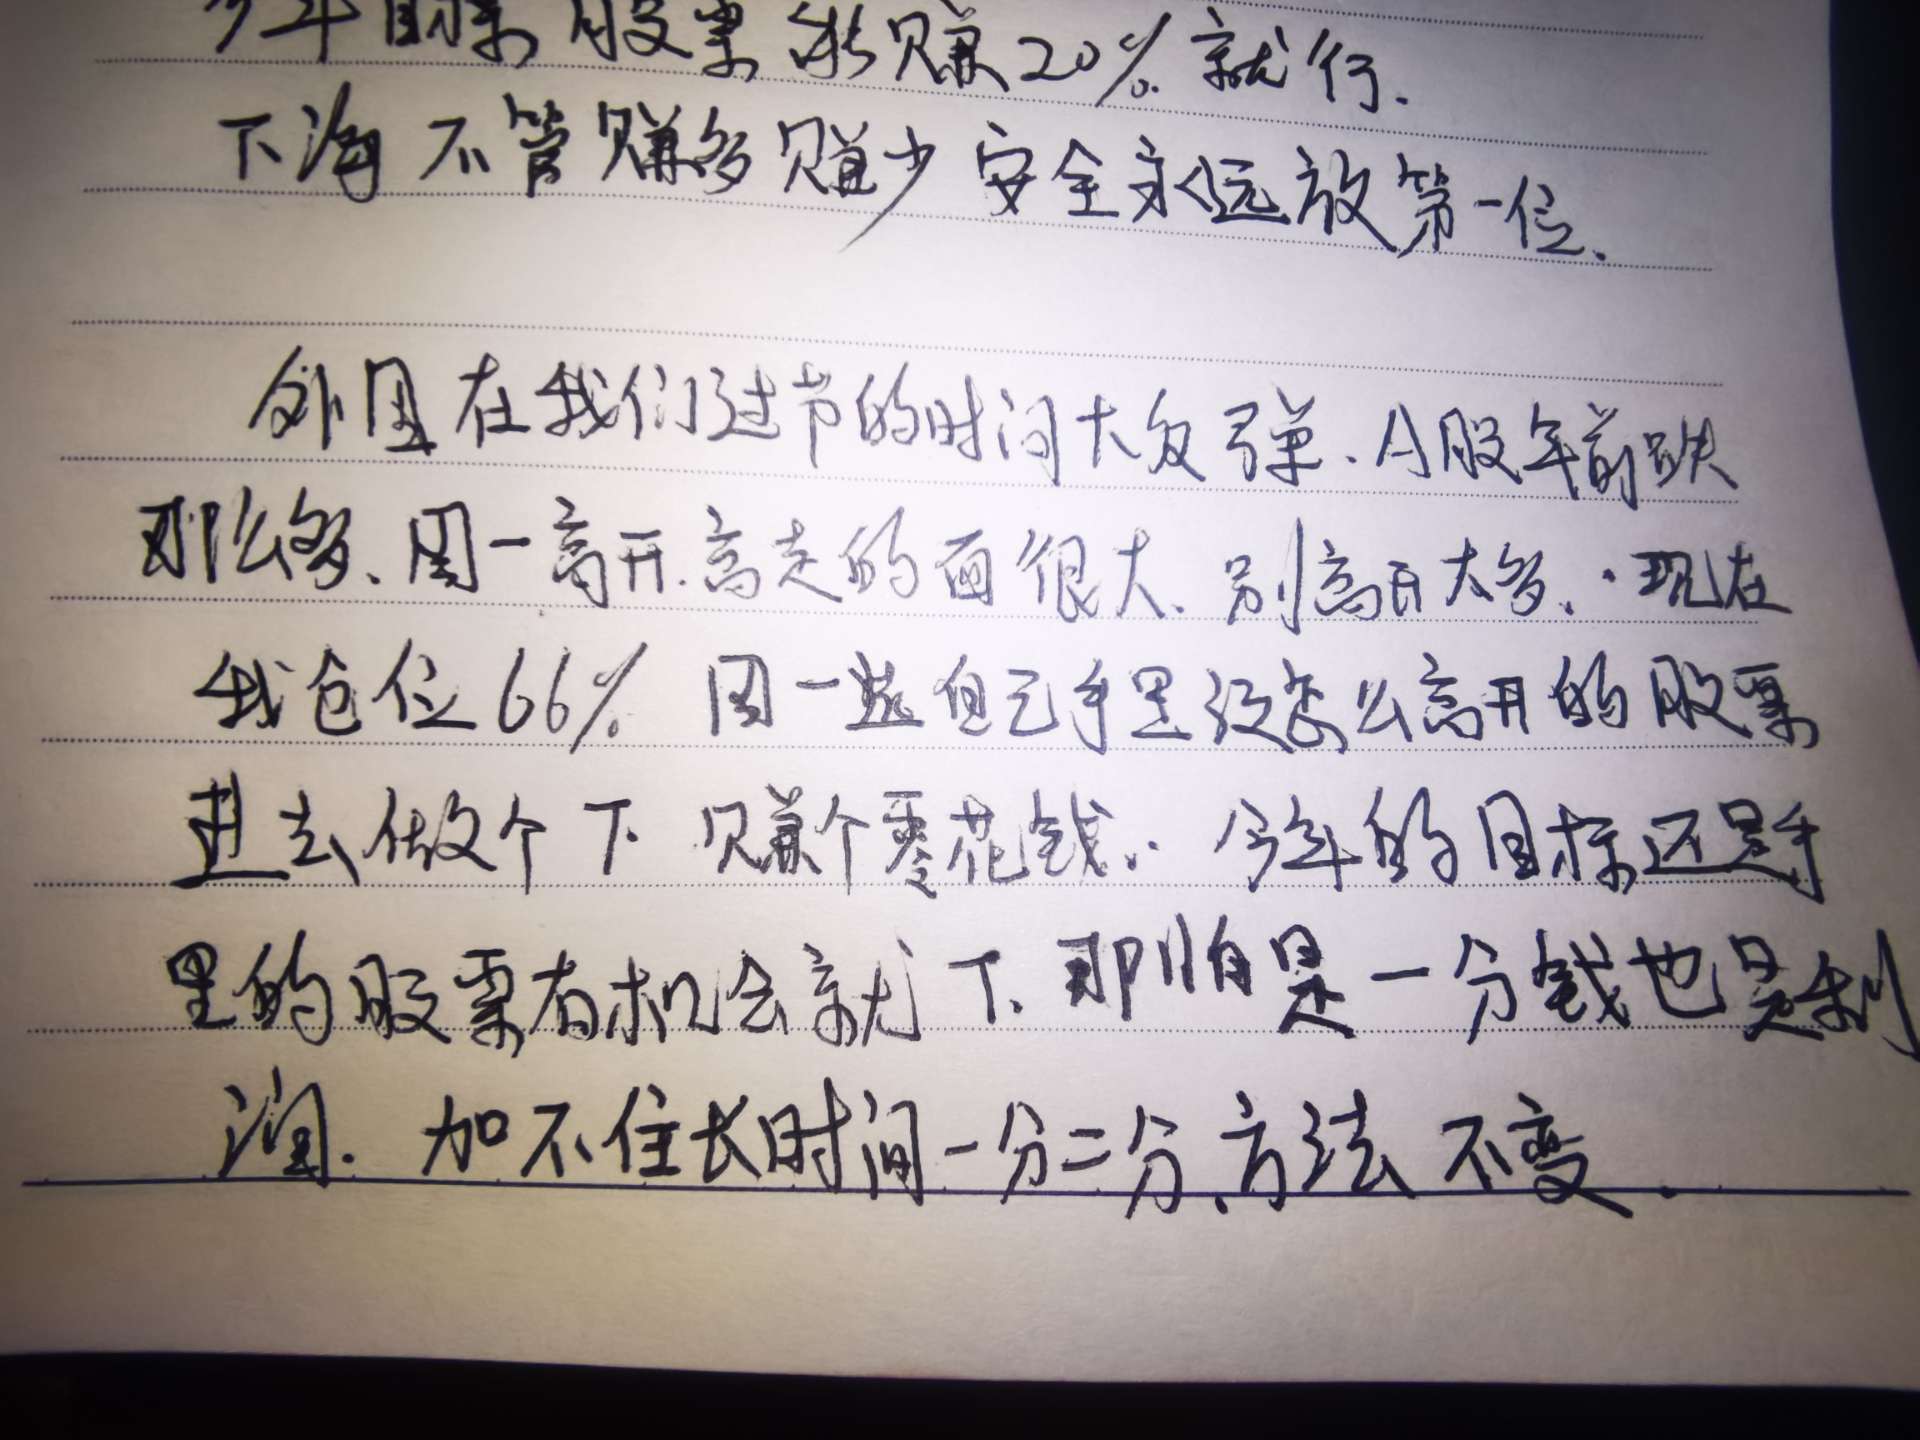 今年目标股票能赚20%就行.
下海不管赚多赚少安全永远放第一位.
外围在我们过节的时间大反弹.A股年前跌
那么多、周一高开.高走的面很大、别高开太多..现在
我仓位66% 周一选自己手里没怎么高开的股票
进去做个T.赚个零花钱..今年的目标还是手
里的股票有机会就T、那怕是一分钱也是利
润.加不住长时间一分二分、方法不变.